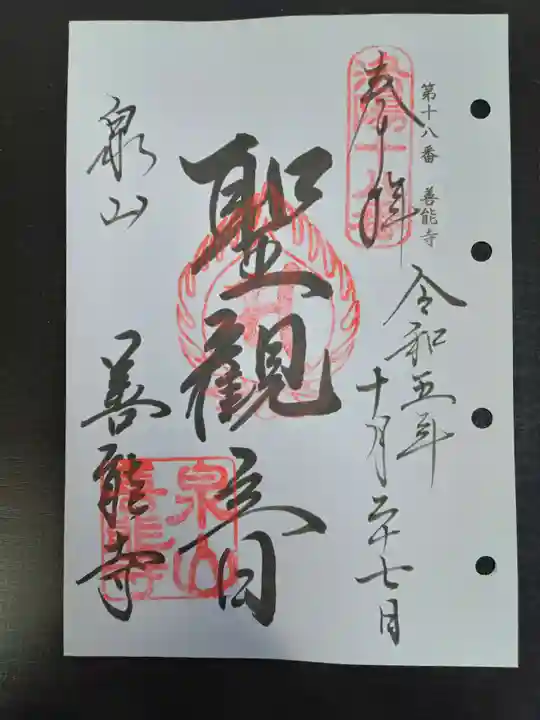 第十八番 善能寺
奉拝
令和五年
十月二十七日
聖觀音
泉山
善能寺
泉山
善能寺